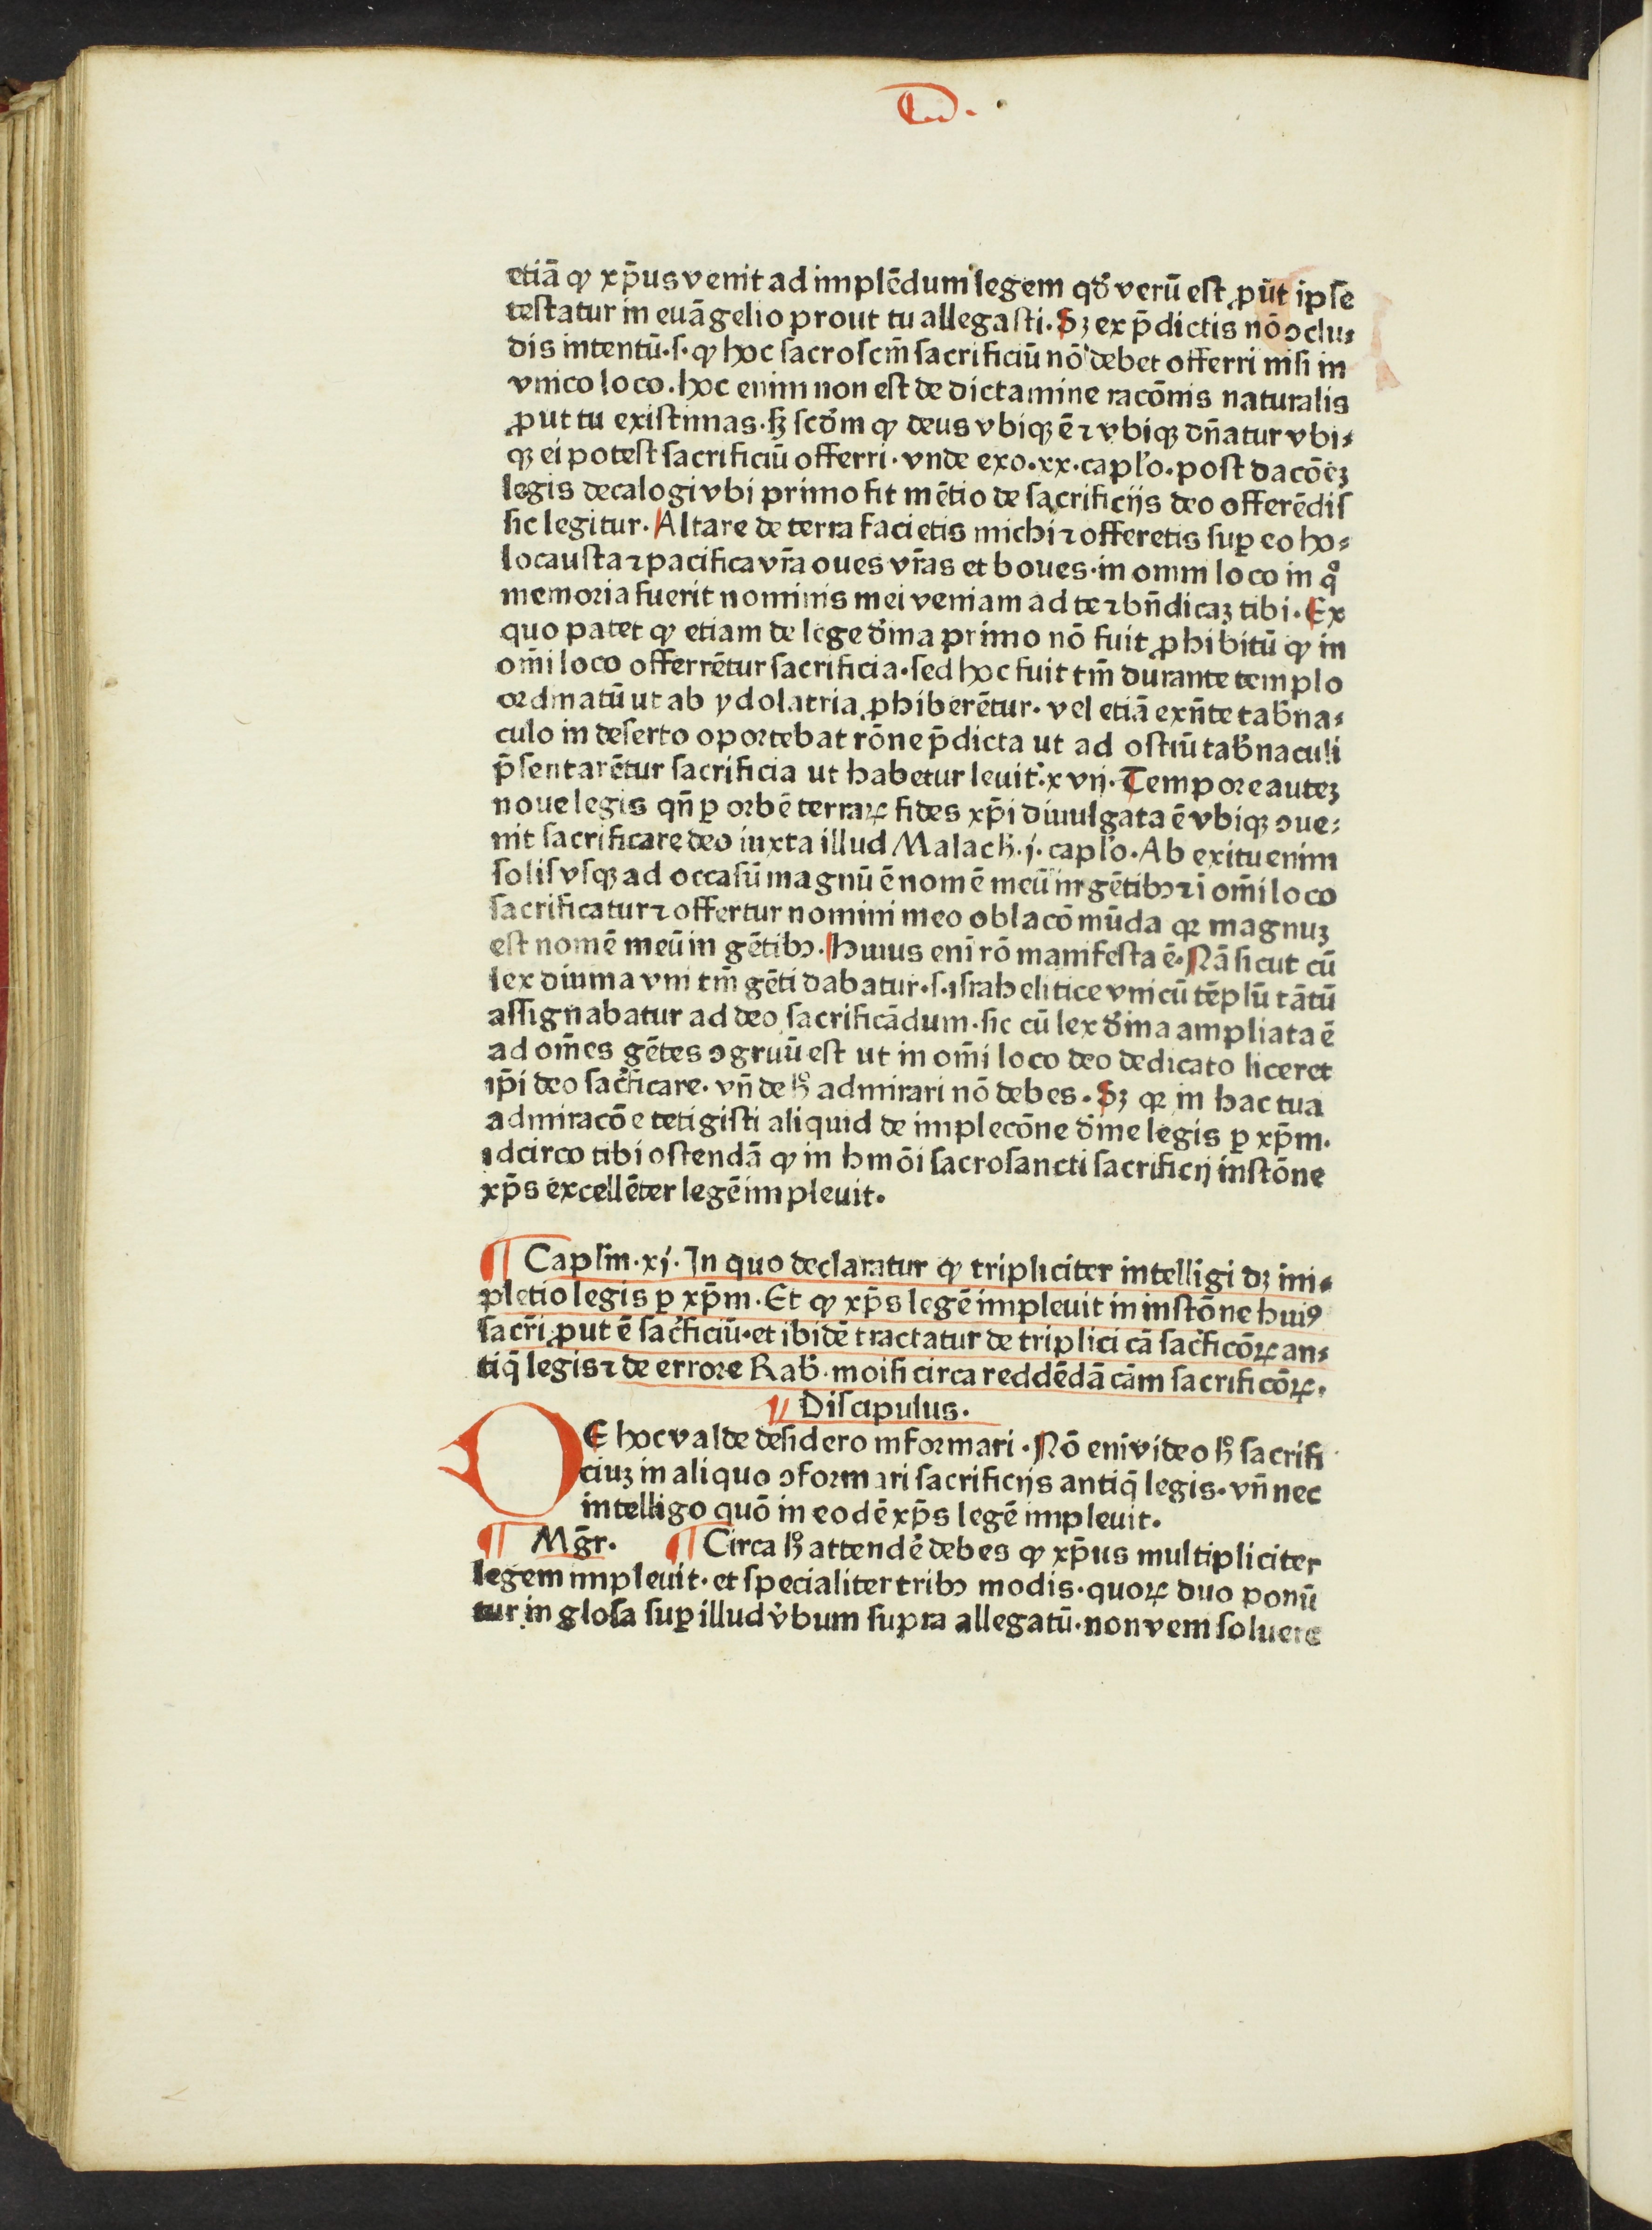 etiā ꝙ xp̄us venit ad implēdum legem qđ verū est ꝓūt ipse
testatur in euāgelio prout tu allegasti. Sꝫ ex p̄dictis nō ↄclu⸗
dis intentū. s. ꝙ hoc sacroscm̄ sacrificiū nō debet offerri nisi in
vnico loco. hoc enim non est de dictamine racōnis naturalis
ꝓut tu existimas. sꝫ scđm ꝙ deus vbiqꝫ ē ⁊ vbiqꝫ dn̄atur vbi⸗
qꝫ ei potest sacrificiū offerri. vnde exo. xx. caplo. post dacōēꝫ
legis decalogi vbi primo fit mētio de sacrificijs deo offerēdis
sic legitur. Altare de terra facietis michi ⁊ offeretis suꝑ eo ho⸗
locausta ⁊ pacifica vr̄a oues vr̄as et boues. in omni loco in qͦ
memoria fuerit nominis mei veniam ad te ⁊ bn̄dicaꝫ tibi. Ex
quo patet ꝙ etiam de lege diīna primo nō fuit ꝓhibitū ꝙ in
om̄i loco offerrētur sacrificia. sed hoc fuit tm̄ durante templo
ordinatū ut ab ydolatria ꝓhiberētur. vel etiā exn̄te tab̄na⸗
culo in deserto oportebat rōne p̄dicta ut ad ostiū tab̄naculi
p̄sentarētur sacrificia ut habetur leuit. xvij. Tempore auteꝫ
noue legis qn̄ ꝑ orbē terraꝝ fides xp̄i diuulgata ē vbiqꝫ ↄue⸗
nit sacrificare deo iuxta illud Malach. j. caplo. Ab exitu enim
solis vsqꝫ ad occasū magnū ē nomē meū in gētibꝰ ⁊ ī om̄i loco
sacrificatur ⁊ offertur nomini meo oblacō mūda qꝛ magnuꝫ
est nomē meū in gētibꝰ. Huius enī rō manifesta ē. Nā sicut cū
lex diuina vni tm̄ gēti dabatur. s. israhelitice vnicū tēplū tātū
assignabatur ad deo sacrificādum. sic cū lex diīna ampliata ē
ad om̄es gētes ↄgruū est ut in om̄i loco deo dedicato liceret
ip̄i deo sac̄ficare. vn̄ de hͦ admirari nō debes. Sꝫ qꝛ in hac tua
admiracōe tetigisti aliquid de implecōne diīne legis ꝑ xp̄m.
idcirco tibi ostendā ꝙ in hmōi sacrosancti sacrificij instōne
xp̄s excellēter legē impleuit.
¶ Caplm. xj. In quo declaratur ꝙ tripliciter intelligi dꝫ im⸗
pletio legis ꝑ xp̄m. Et ꝙ xp̄s legē impleuit in instōne huiꝰ
sacr̄i ꝓut ē sac̄ficiū. et ibidē tractatur de triplici cā sac̄ficōꝝ an⸗
tiq̄ legis ⁊ de errore Rab̄. moisi circa reddēdā cām sacrificōꝝ.
¶ Discipulus.
DE hoc valde desidero informari. Nō enī video hͦ sacrifi
ciuꝫ in aliquo ↄformari sacrificijs antiq̄ legis. vn̄ nec
intelligo quō in eodē xp̄s legē impleuit.
¶ Mḡr. ¶ Circa hͦ attendē debes ꝙ xp̄us multipliciter
legem impleuit. et specialiter tribꝰ modis. quoꝝ duo ponū
tur in glosa suꝑ illud v̄bum supra allegatū. non veni soluere